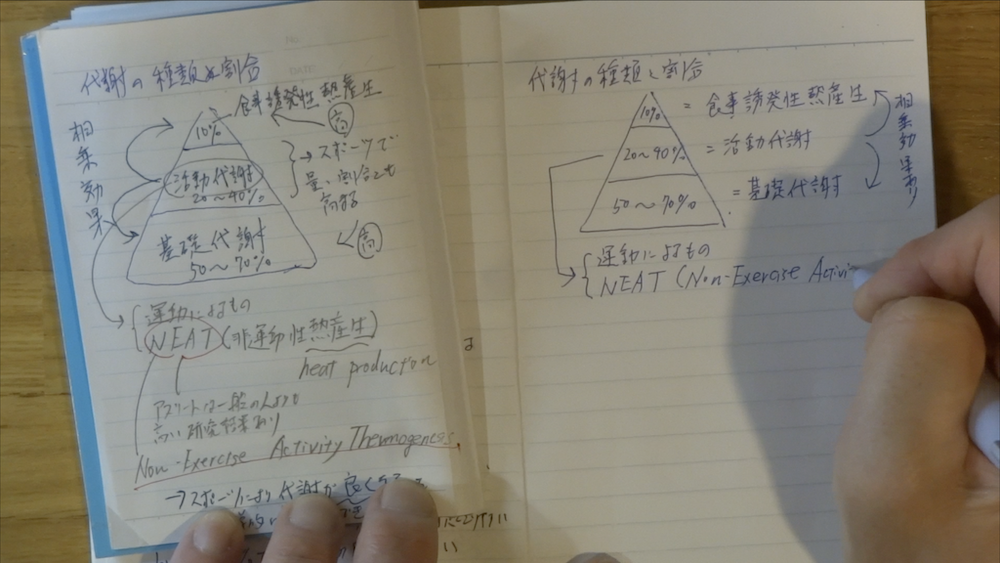 代謝の種類と割合
相乗効果
10%
食事誘発性熱産生
高
活動代謝
20~90%
→スポーツで
量、割合とも
高まる
基礎代謝
50~70%
高
運動によるもの
NEAT(非運動性熱産生)
heat production
アスリートは一般の人よりも
高い研究結果あり
Non-Exercise Activity Thermogenes
→スポーツにより代謝が良くなる
代謝の種類と割合
10% = 食事誘発性熱産生
20~90% = 活動代謝
50~70% = 基礎代謝
相乗効果あり
運動によるもの
NEAT (Non-Exercise Activi